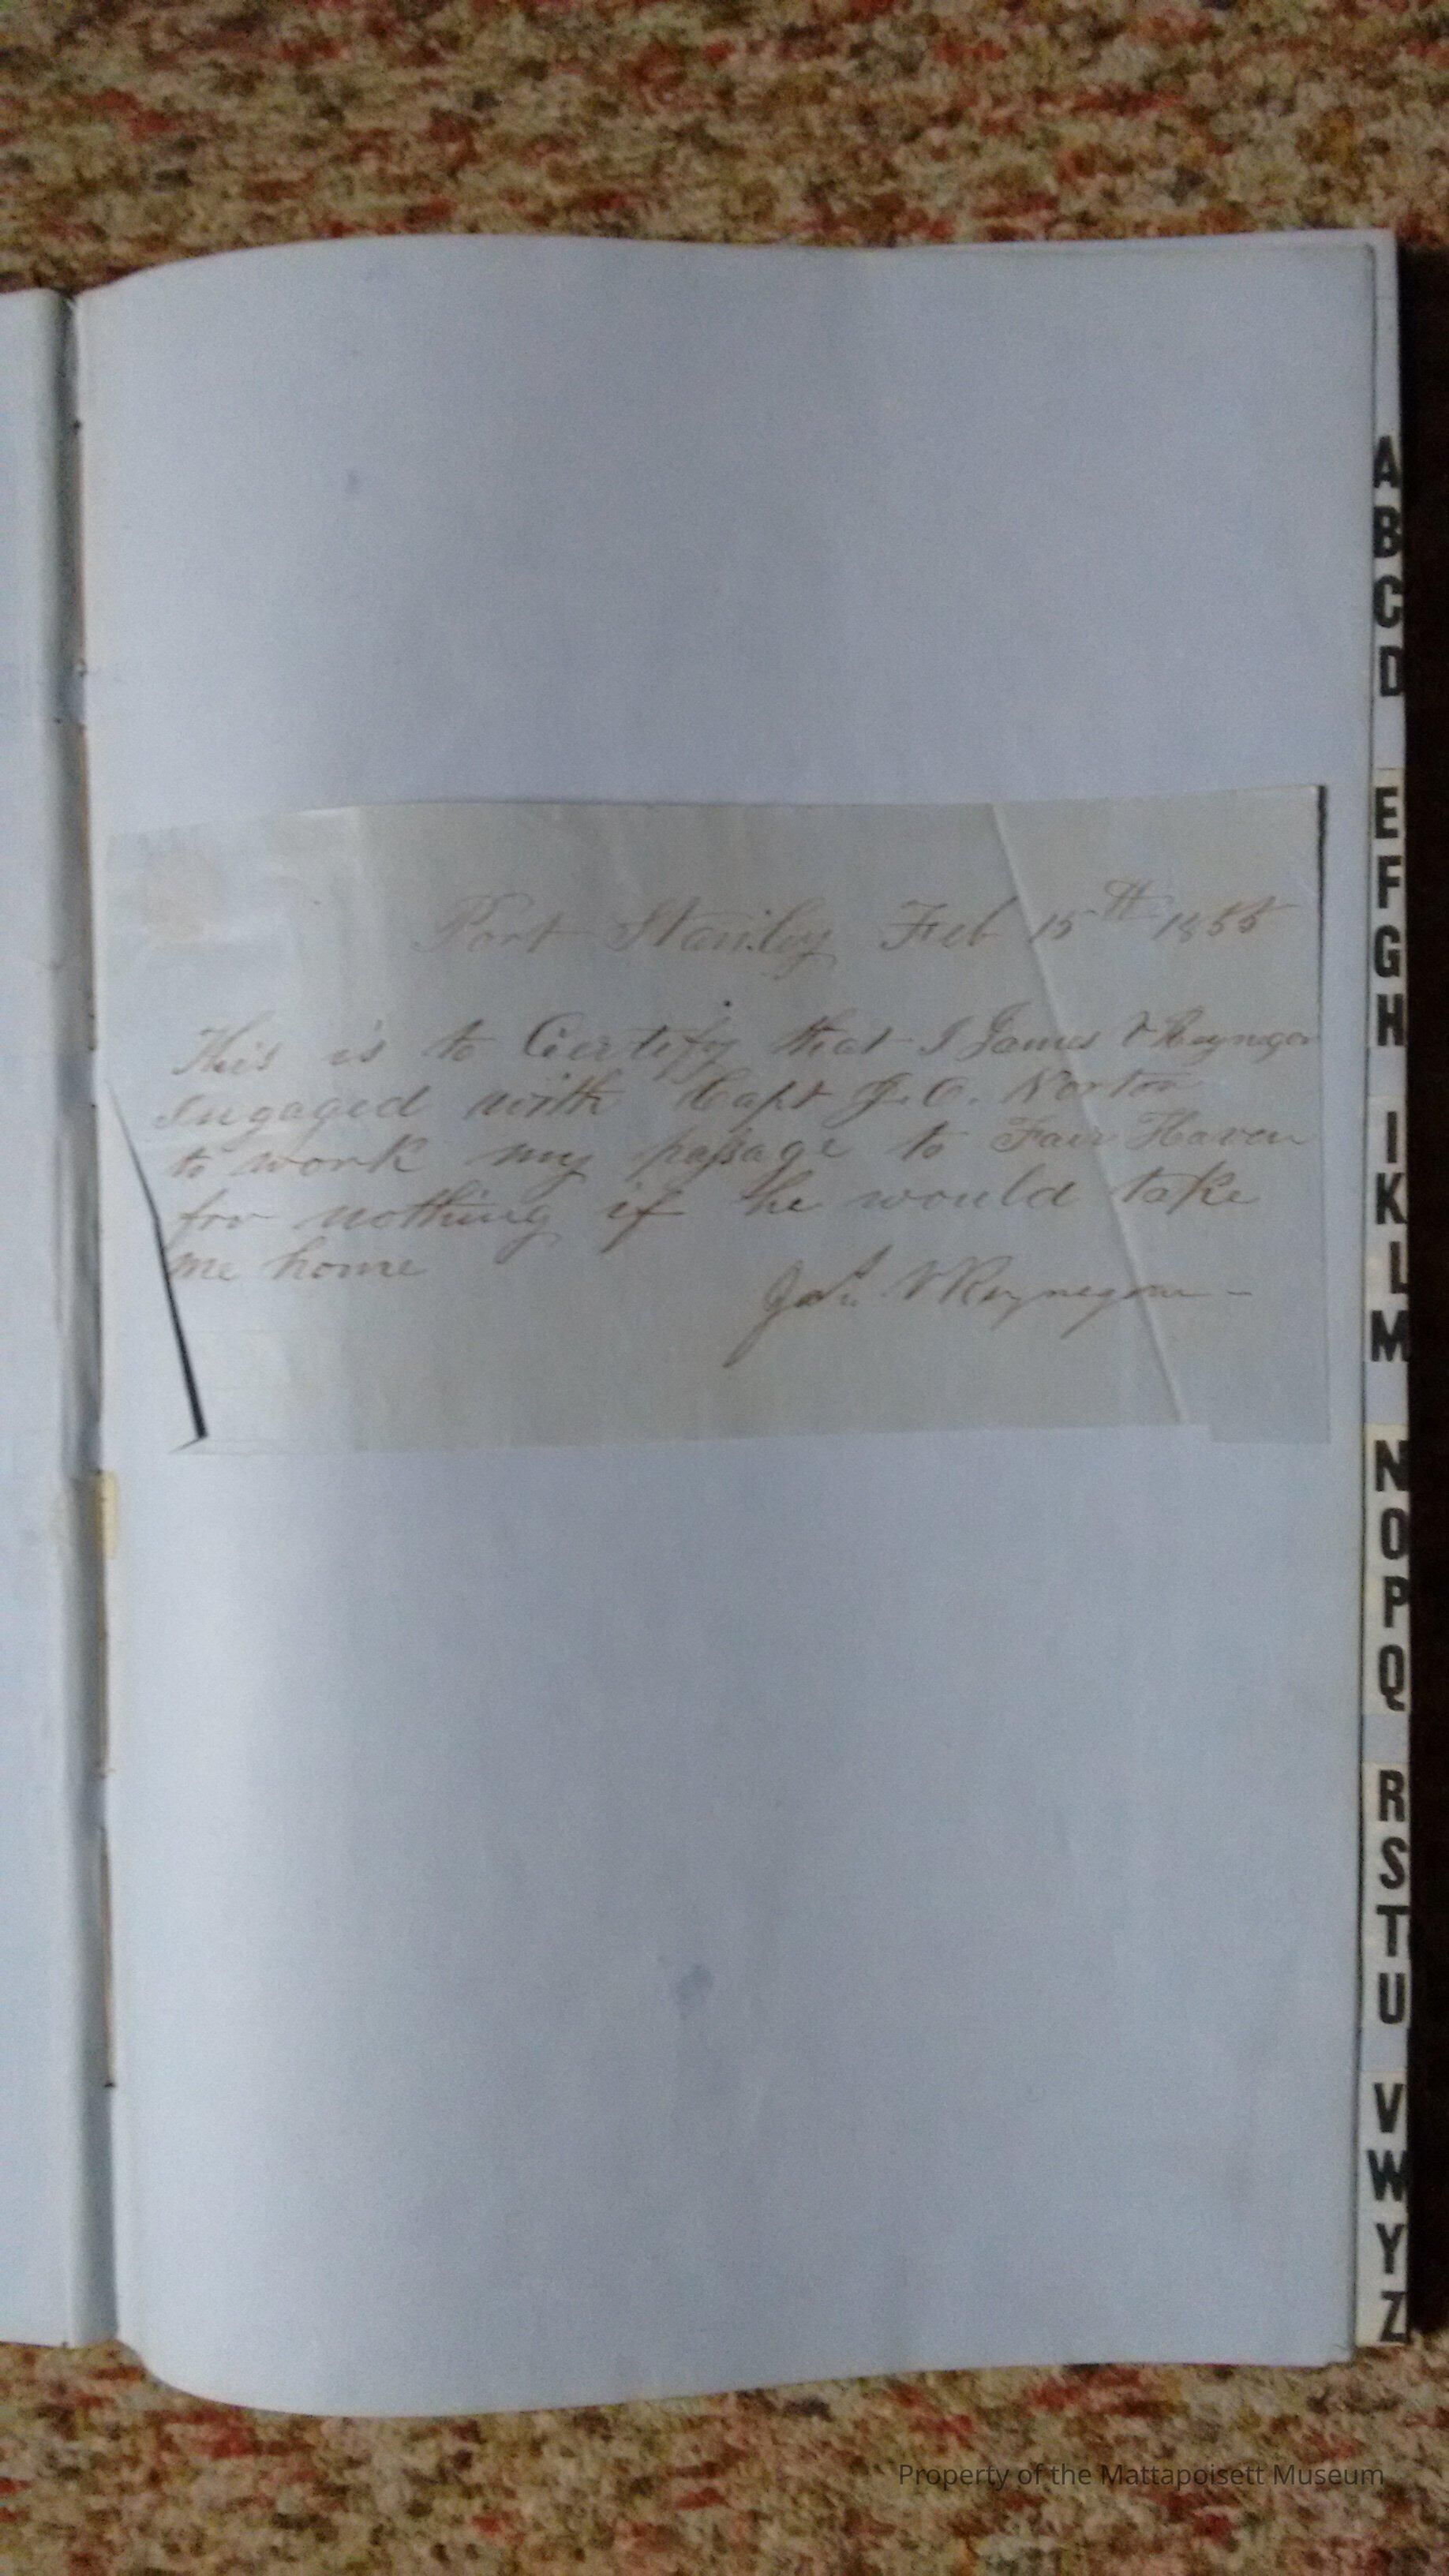 Port Stanley Feb 15th 1855
This is to Certify that I James V Reynegom
Engaged with Capt J. O. Norton
to work my passage to Fair Haven
for nothing if he would take
me home
Jas. V Reynegom
A
B
C
D
E
F
G
H
I
K
L
M
N
O
P
Q
R
S
T
U
V
W
Y
Z
Property of the Mattapoisett Museum